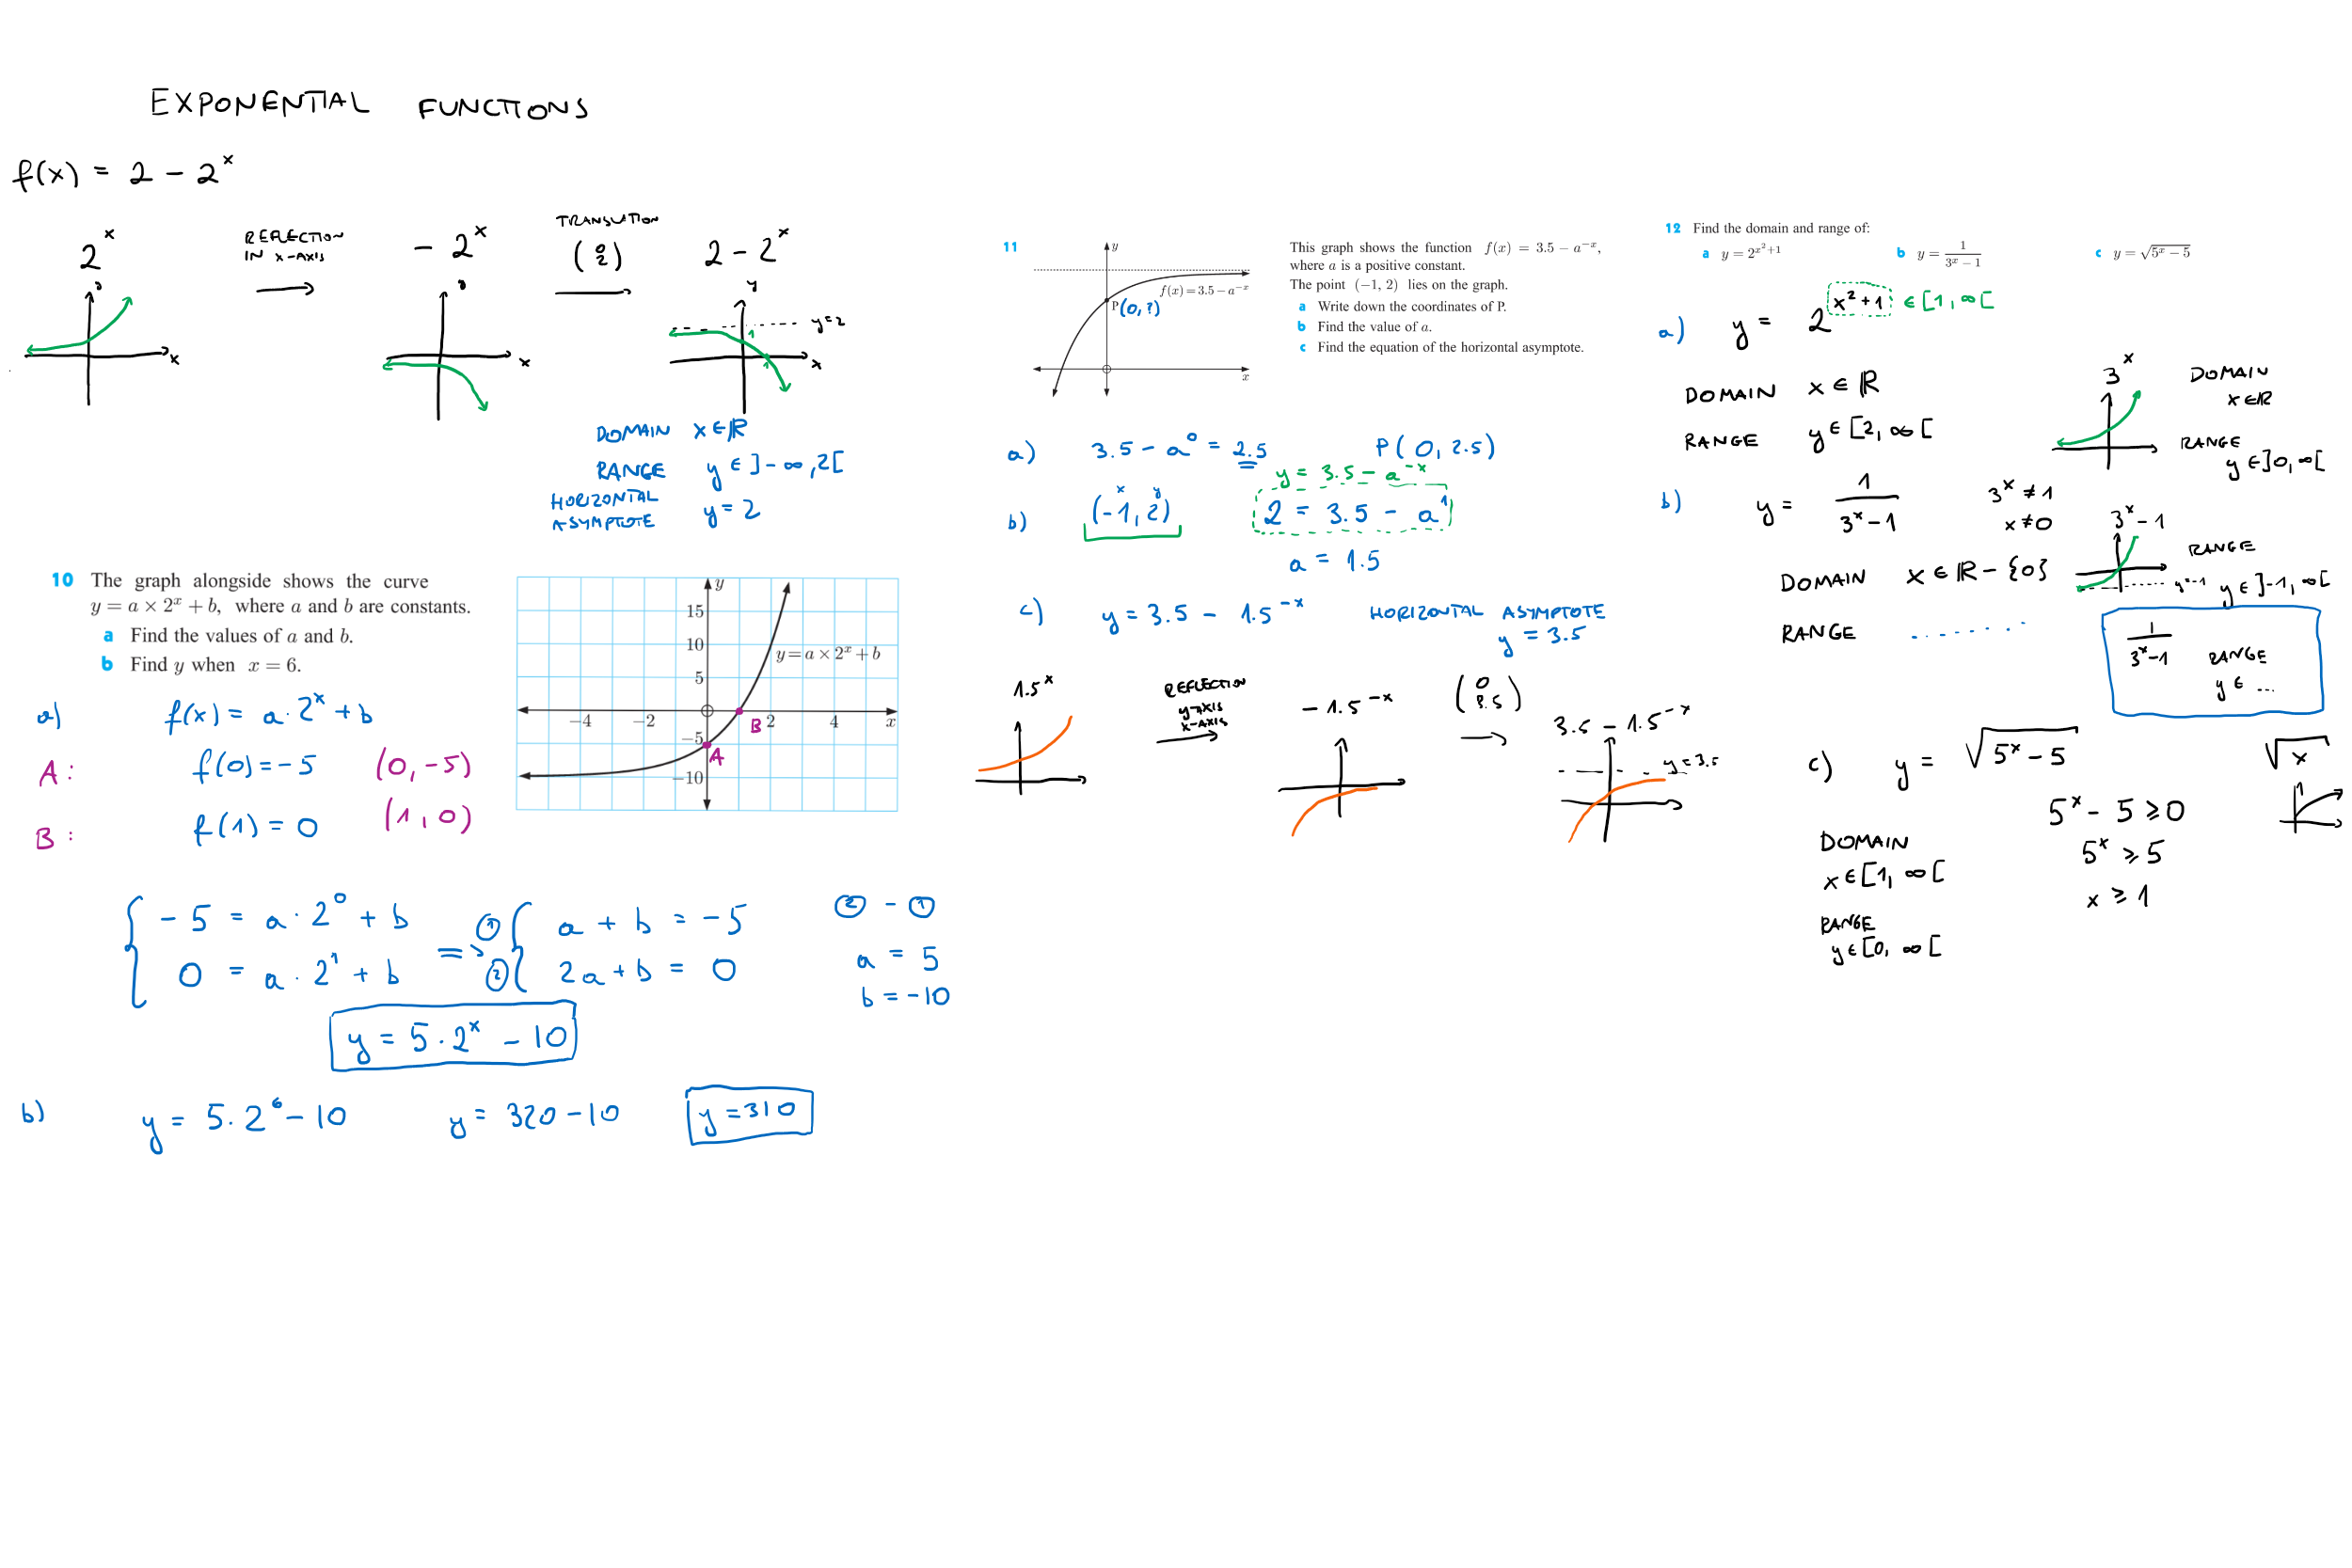 EXPONENTIAL FUNCTIONS
f(x) = 2 - 2^x
2^x
REFLECTION
IN x-AXIS
- 2^x
TRANSLATION
(0 2)
2 - 2^x
x
x
y
y=2
1
1
x
DOMAIN x∈ℝ
RANGE y∈]-∞,2[
HORIZONTAL
ASYMPTOTE y=2
10 The graph alongside shows the curve
y = a × 2^x + b, where a and b are constants.
a Find the values of a and b.
b Find y when x = 6.
y
15
10
5
-5
-10
-4 -2 2 4 x
y = a × 2^x + b
A
B
a) f(x) = a·2^x + b
A: f(0)=-5 (0,-5)
B: f(1)=0 (1,0)
-5 = a·2^0 + b
0 = a·2^1 + b
=>
① a + b = -5
② 2a+b = 0
② - ①
a = 5
b = -10
y = 5·2^x - 10
b) y = 5.2^6 - 10 y = 320-10 y=310
11
y
f(x) = 3.5 - a^-x
P(0,?)
x
This graph shows the function f(x) = 3.5 - a^-x,
where a is a positive constant.
The point (-1, 2) lies on the graph.
a Write down the coordinates of P.
b Find the value of a.
c Find the equation of the horizontal asymptote.
a) 3.5 - a^0 = 2.5 P(0, 2.5)
y = 3.5 - a^-x
x y
b) (-1, 2) 2 = 3.5 - a^1
a = 1.5
c) y = 3.5 - 1.5^-x HORIZONTAL ASYMPTOTE
y = 3.5
1.5^x
REFLECTION
y-AXIS
x-AXIS
- 1.5^-x
(0 3.5)
3.5 - 1.5^-x
y=3.5
12 Find the domain and range of:
a y = 2^(x²+1) b y = 1/(3^x - 1) c y = √(5^x - 5)
a) y = 2^(x²+1) ∈[1,∞[
DOMAIN x∈ℝ
RANGE y∈[2,∞[
3^x
DOMAIN
x∈ℝ
RANGE
y∈]0,∞[
b) y = 1/(3^x-1) 3^x≠1
x≠0
DOMAIN x∈ℝ-{0}
RANGE .......
3^x-1
RANGE
y=-1 y∈]-1,∞[
1/(3^x-1) RANGE
y∈ ...
c) y = √(5^x - 5)
√x
5^x - 5 ≥ 0
5^x ≥ 5
x ≥ 1
DOMAIN
x∈[1,∞[
RANGE
y∈[0,∞[